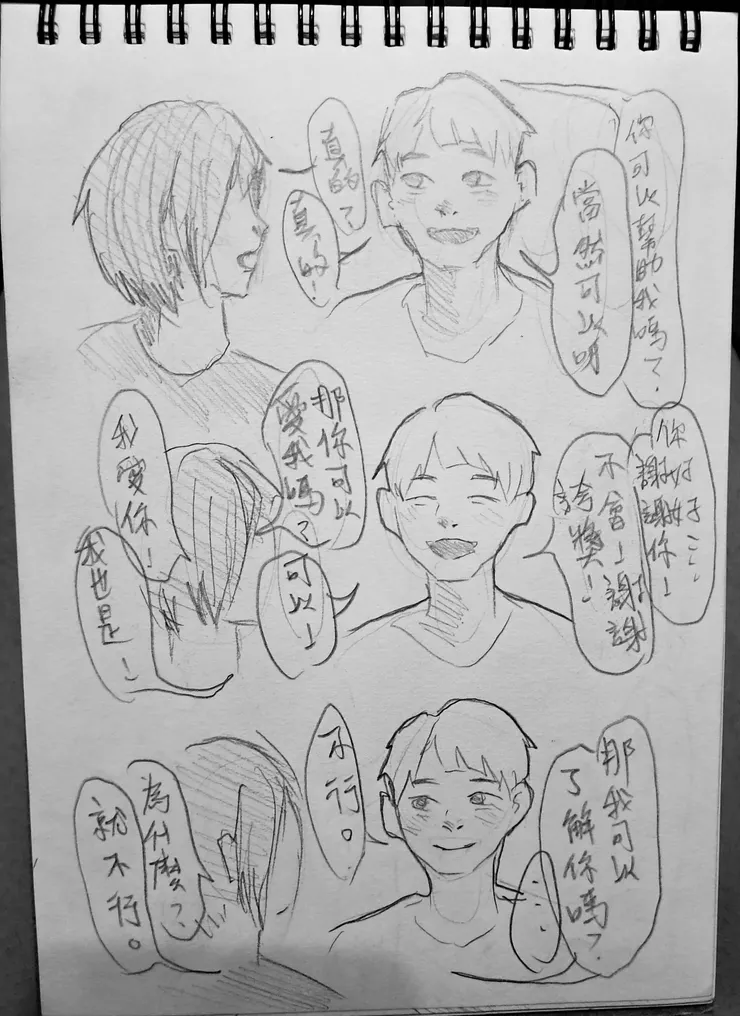 你可以幫助我嗎?
當然可以唷
真的?
真的!
你好好...
謝謝你!
不會!謝謝
誇獎!
那你可以
愛我嗎?
可以!
我愛你!
我也是!
那我可以
了解你嗎?
...
不行。
為什麼?
就不行。